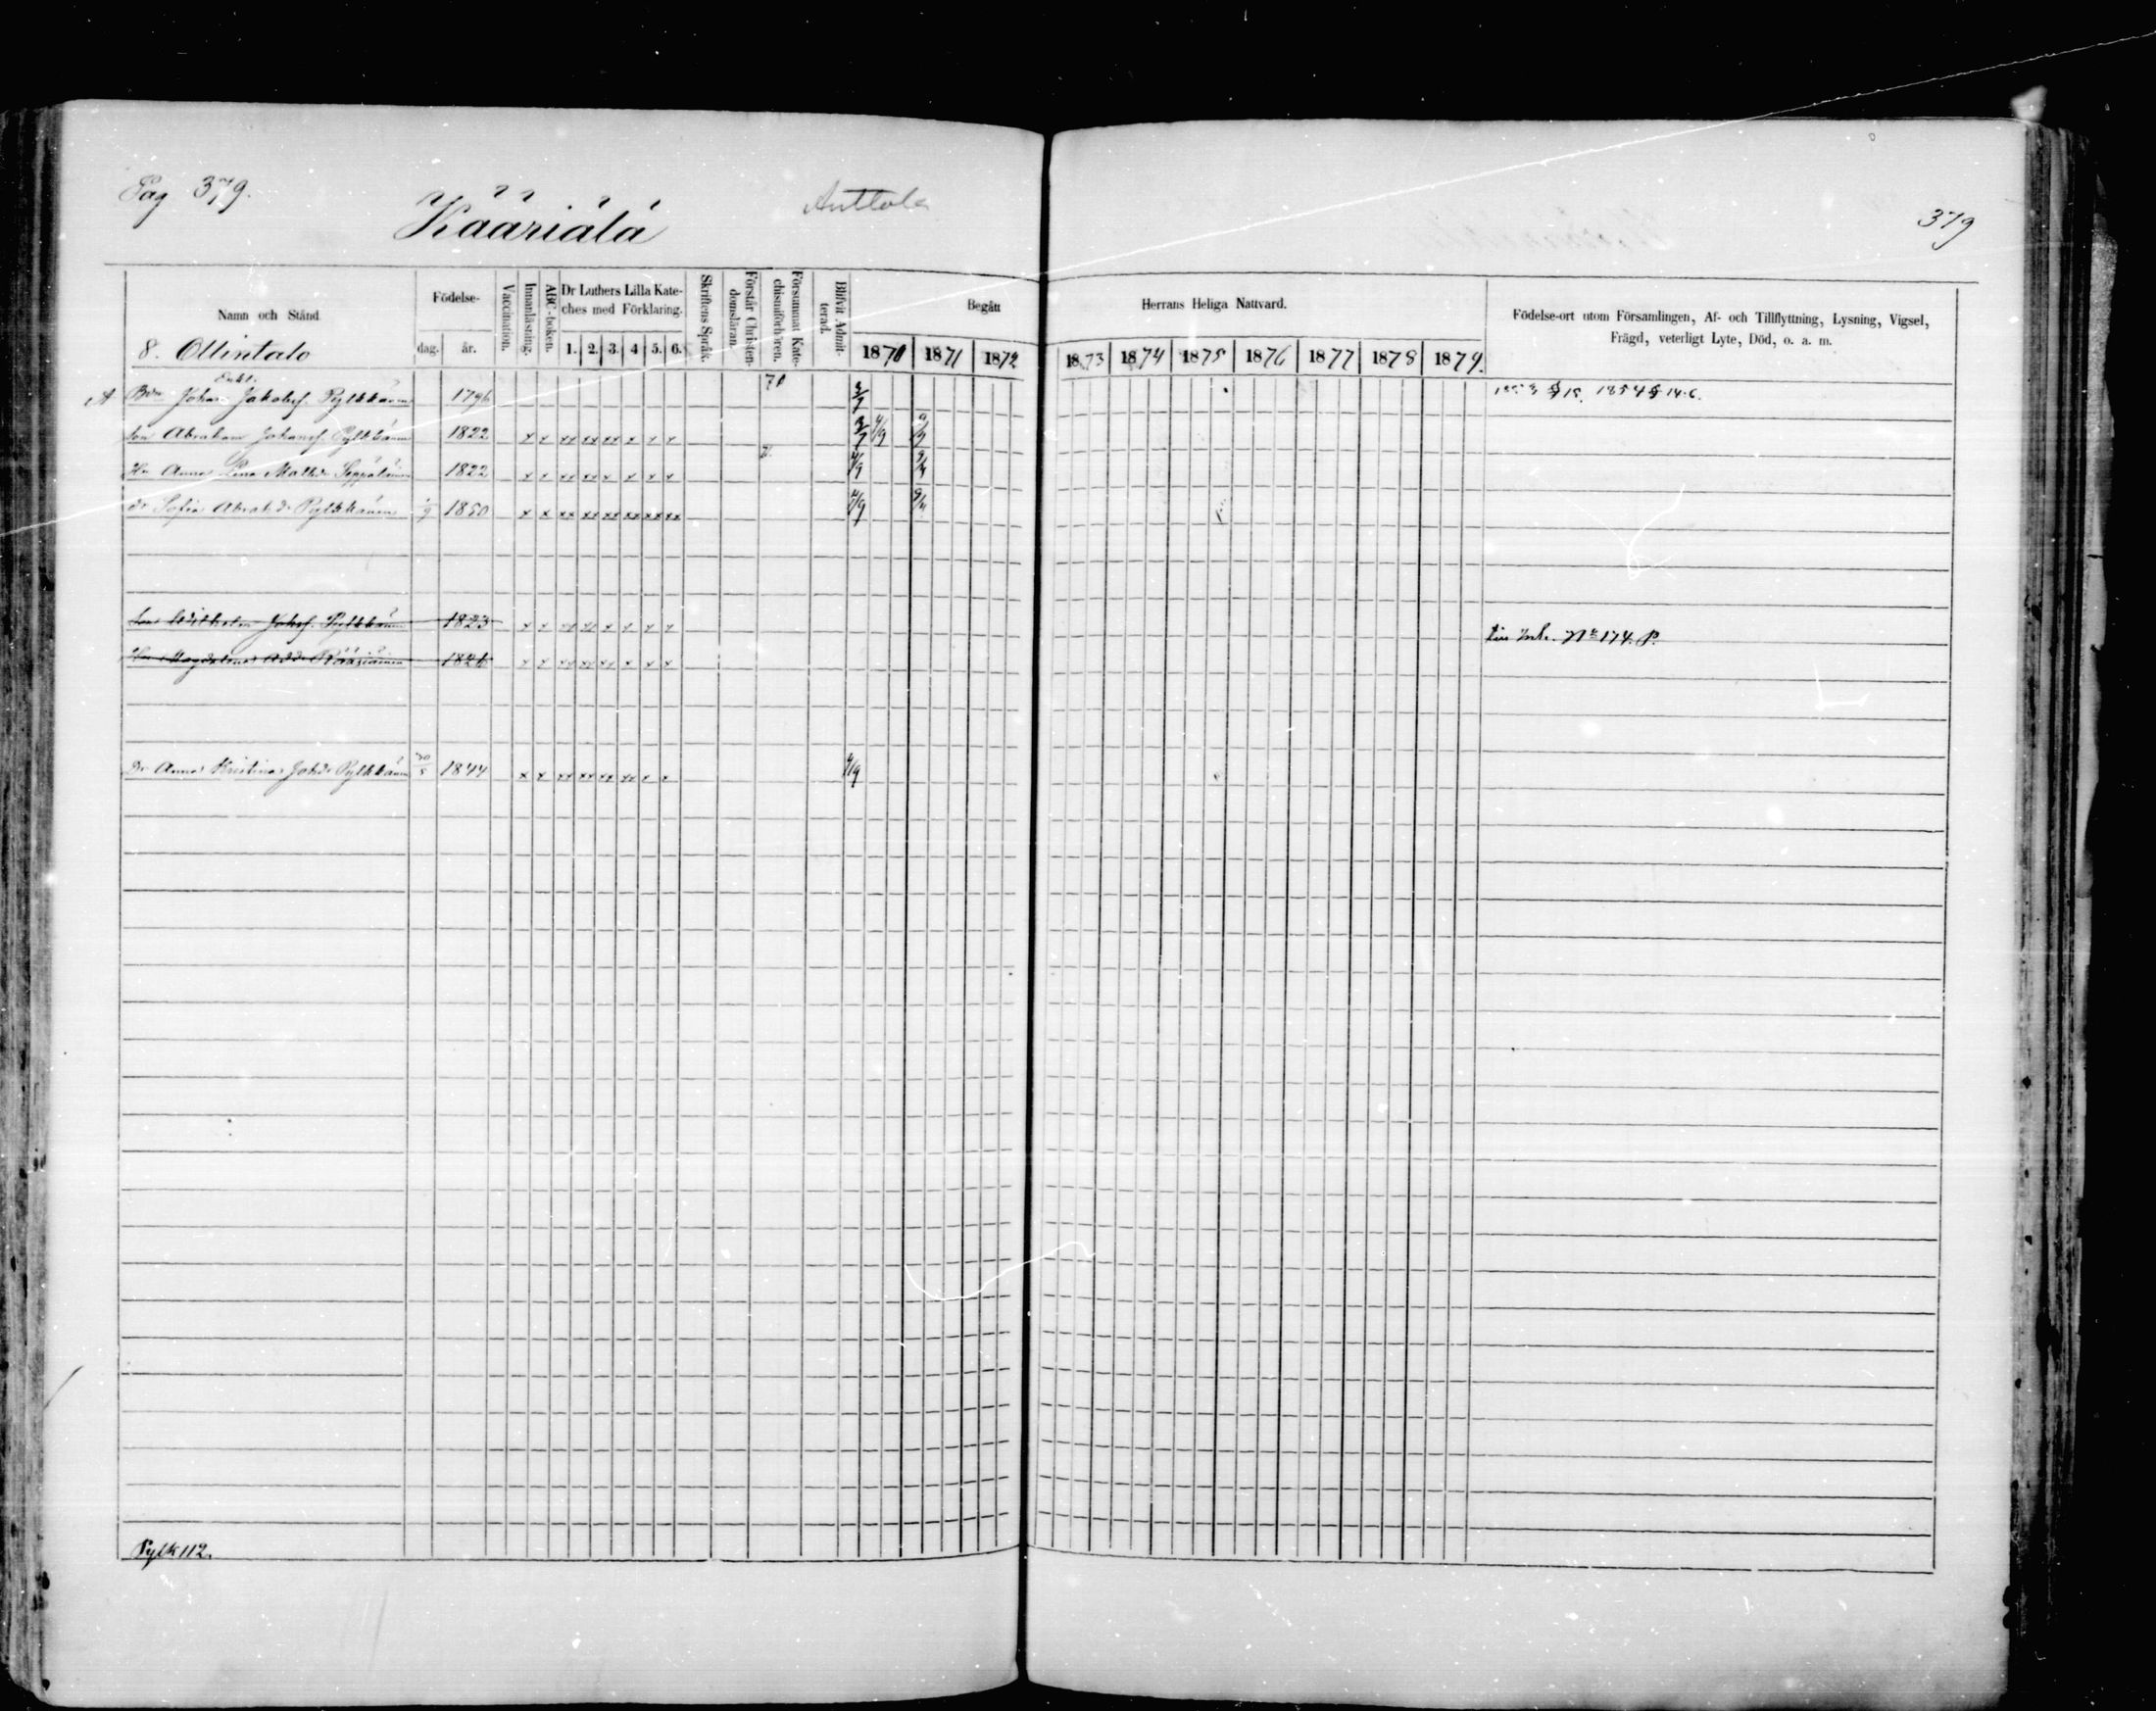 Pag 379.
Kääriälä
Anttola
379
Namn och Stånd
Födelse-
dag.
år.
Vaccination.
Innanläsning.
ABC-boken.
Dr Luthers Lilla Kate-
ches med Förklaring.
1. 2. 3. 4 5. 6.
Skriftens Språk.
Förstår Christen-
domsläran.
Försummat Kate-
chismiförhören.
Blifvit Admit-
terad.
Begått
Herrans Heliga Nattvard.
1870 1871 1872 1873 1874 1875 1876 1877 1878 1879.
Födelse-ort utom Församlingen, Af- och Tillflyttning, Lysning, Vigsel,
Frägd, veterligt Lyte, Död, o. a. m.
8. Ollintalo
Enkl.
Bdn Johan Jakobsf. Pylkkänen 1796 70 3/7
Son Abraham Johansf. Pylkkänen 1822 x x xx xx xx x x x 3/7 4/9
Hu Anna Lena Mattsdr Seppäläinen 1822 x x xx xx x x x x 4/9
dr Sofia Abrah.dr Pylkkänen 1850 x x xx xx xx xx xx xx 4/9
Son Wilhelm Johsf. Pylkkänen 1823 x x xx xx x x x x
No 174. P.
Hu Magdalena Add. Kääriäinen 1826 x x xx xx xx x x x
Dr Anna Kristina Johdr Pylkkänen 30/5 1844 x x xx xx xx xx x x 4/9
Pylk 112.